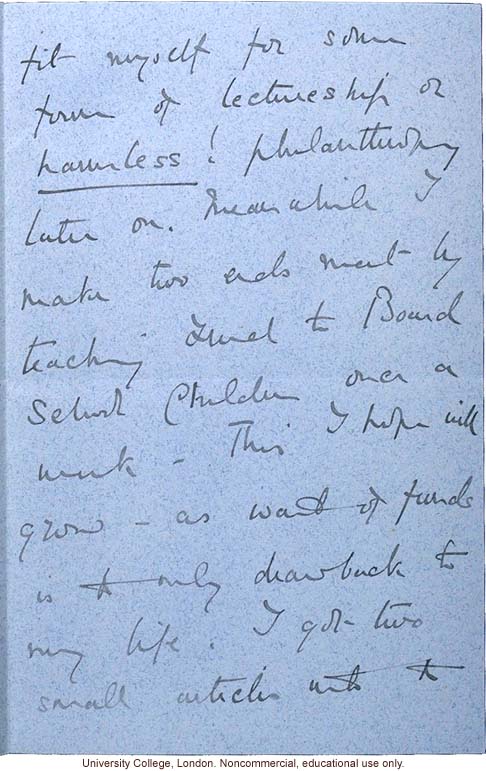 fit myself for some
form of lectureship or
harmless! philanthropy
later on. Meanwhile I
make two ends meet by
teaching to Board
School Children once a
week – This I hope will
grow – as want of funds
is the only drawback to
my life. I got two
small articles into the
University College, London. Noncommercial, educational use only.